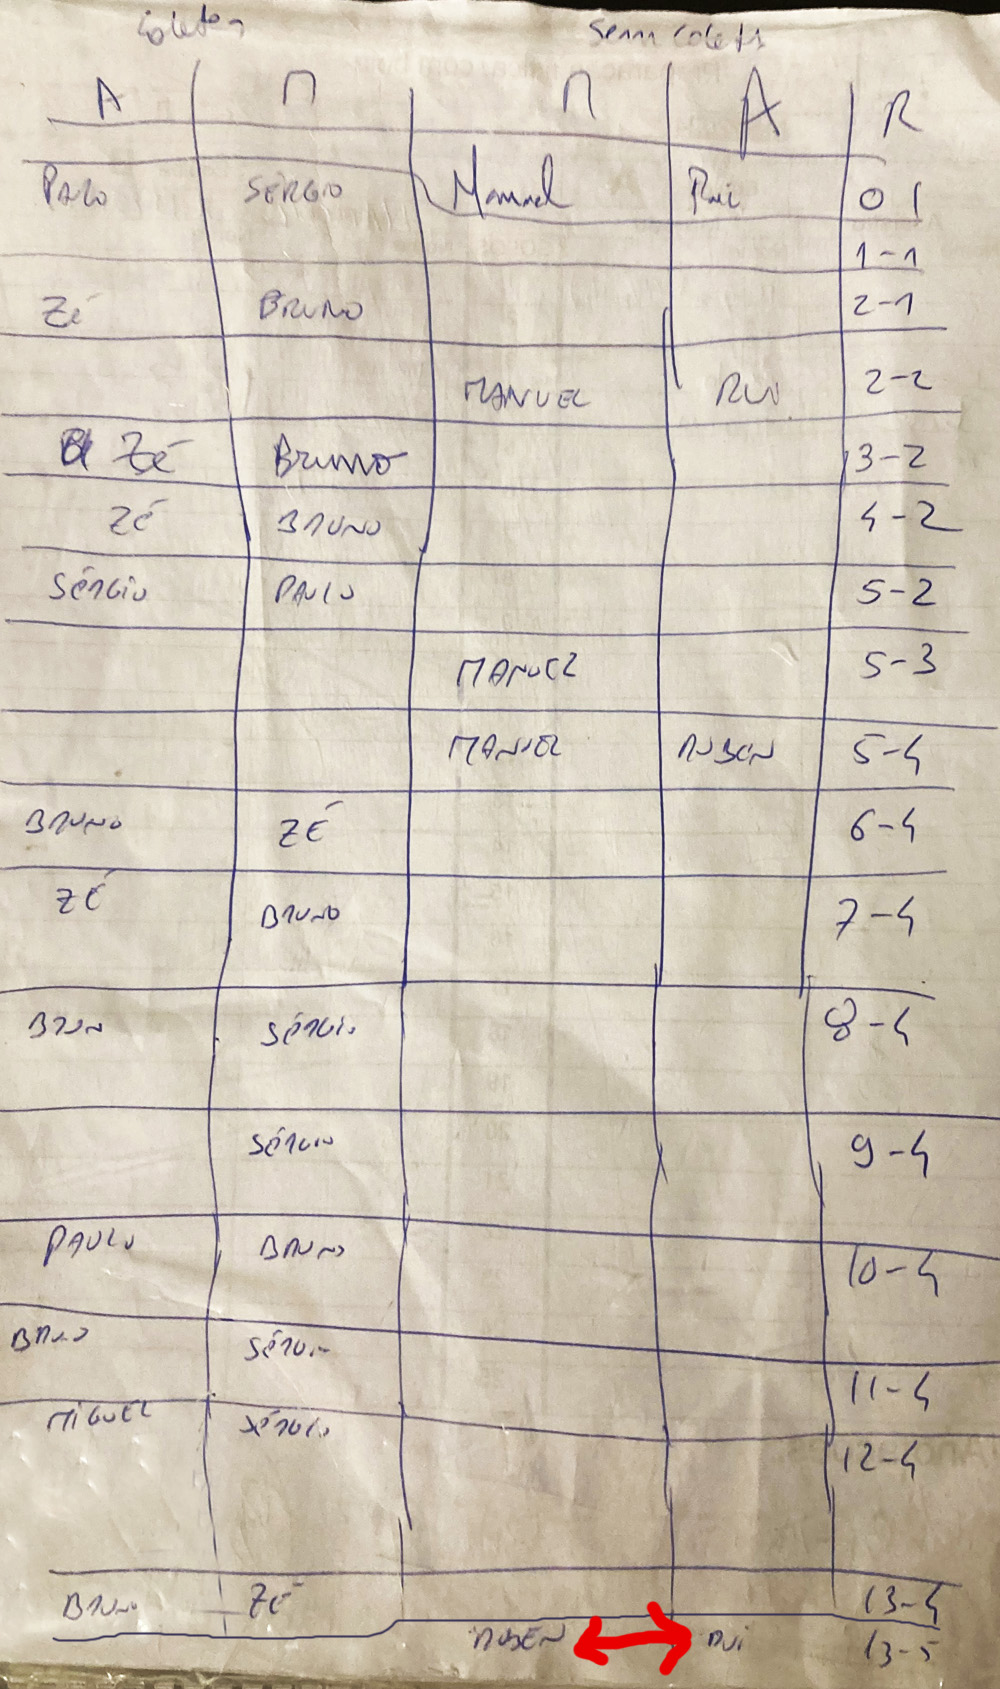 Coletes Sem Coletes
A M M A R
Paulo SÉRGIO Manuel Rui 0 1
1-1
Zé BRUNO 2-1
MANUEL RUI 2-2
Zé Bruno 3-2
ZÉ BRUNO 4-2
SÉRGIO PAULO 5-2
MANUEL 5-3
MANUEL RUBEN 5-4
BRUNO ZÉ 6-4
ZÉ BRUNO 7-4
BRUN SÉRGIO 8-4
SÉRGIO 9-4
PAULO BRUNO 10-4
BRUNO SÉRGIO 11-4
MIGUEL SÉRGIO 12-4
BRUNO ZÉ 13-4
RUBEN RUI 13-5